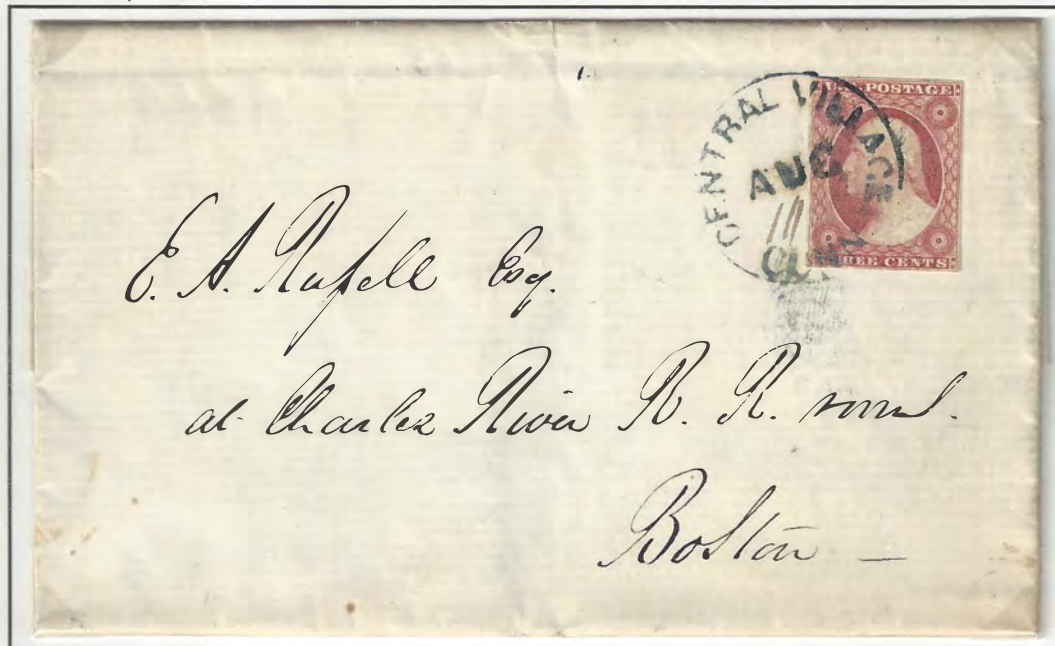 CENTRAL VILLAGE
AUG
11
CONN
U.S. POSTAGE
THREE CENTS
E. A. Russell Esq.
at Charles River R. R. room.
Boston —